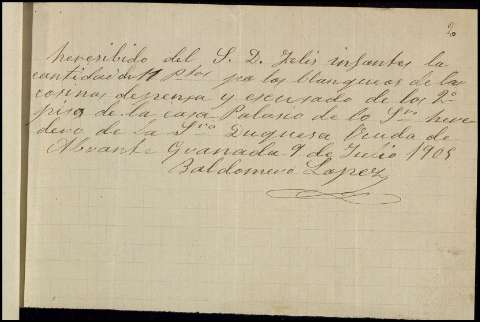 2º
he resibido del S. D. Felis infantes la
cantidad de 11 ptas por los blanqueos de la
cosinas despensa y escusado de los 2º
pisos de la casa Palasio de lo Sres here
deros de la Sra Duquesa Viuda de
Abrante Guanada 9 de Julio 1905
Baldomero Lopez